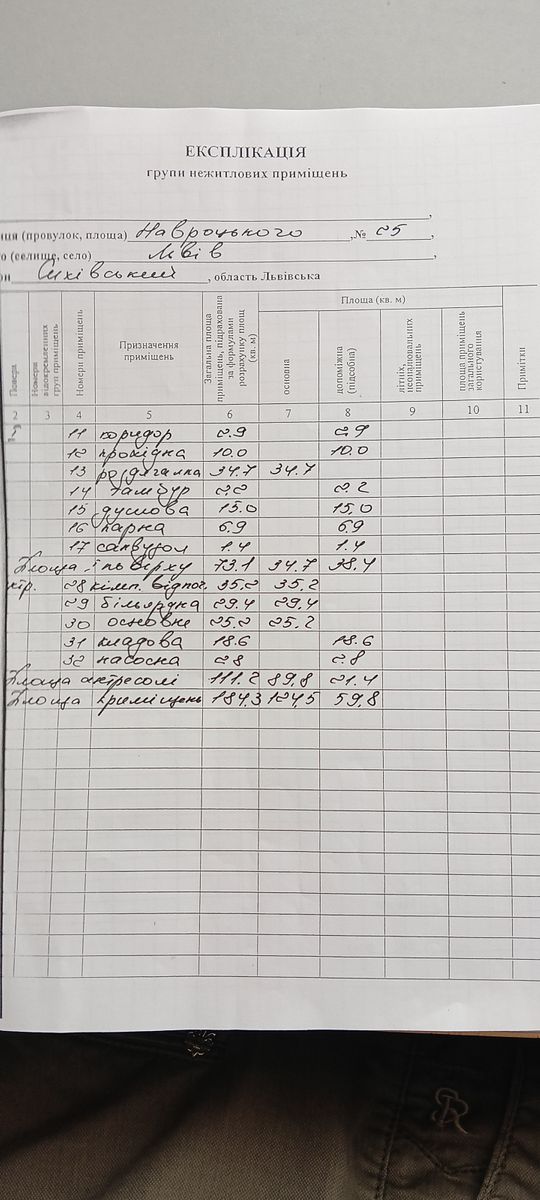 ЕКСПЛІКАЦІЯ
групи нежитлових приміщень
(провулок, площа) Навроцького, № 25,
(селище, село) Львів,
Сихівський, область Львівська
Поверх
Номери відокремленних груп приміщень
Номери приміщень
Призначення приміщень
Загальна площа приміщень, підрахована за формулами розрахунку площ (кв. м)
Площа (кв. м)
основна
допоміжна (підсобна)
літніх, неопалювальних приміщень
площа приміщень загального користування
Примітки
2 3 4 5 6 7 8 9 10 11
11 коридор 2.9 2.9
12 прохідна 10.0 10.0
13 роздягалка 34.7 34.7
14 тамбур 2.2 2.2
15 душова 15.0 15.0
16 парна 6.9 6.9
17 санвузол 1.4 1.4
Площа І поверху 73.1 34.7 38.4
28 кімн. відпоч. 35.2 35.2
29 більярдна 29.4 29.4
30 основне 25.2 25.2
31 кладова 18.6 18.6
32 насосна 2.8 2.8
Площа антресолі 111.2 89.8 21.4
Площа приміщень 184.3 124.5 59.8